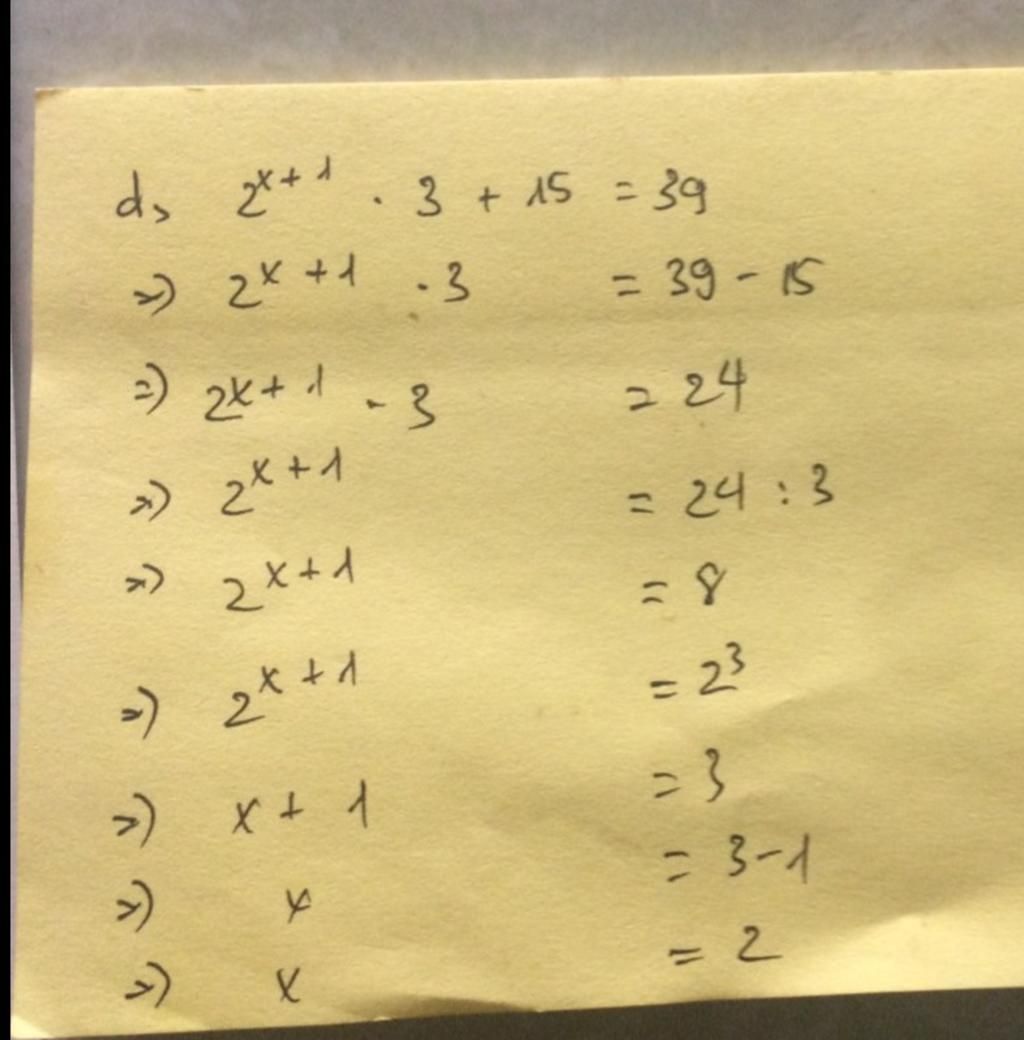 d, 2^{x+1} . 3 + 15 = 39
=) 2^{x+1} . 3 = 39 - 15
=) 2^{x+1} . 3 = 24
=) 2^{x+1} = 24 : 3
=) 2^{x+1} = 8
=) 2^{x+1} = 2^3
=) x + 1 = 3
=) x = 3 - 1
=) x = 2